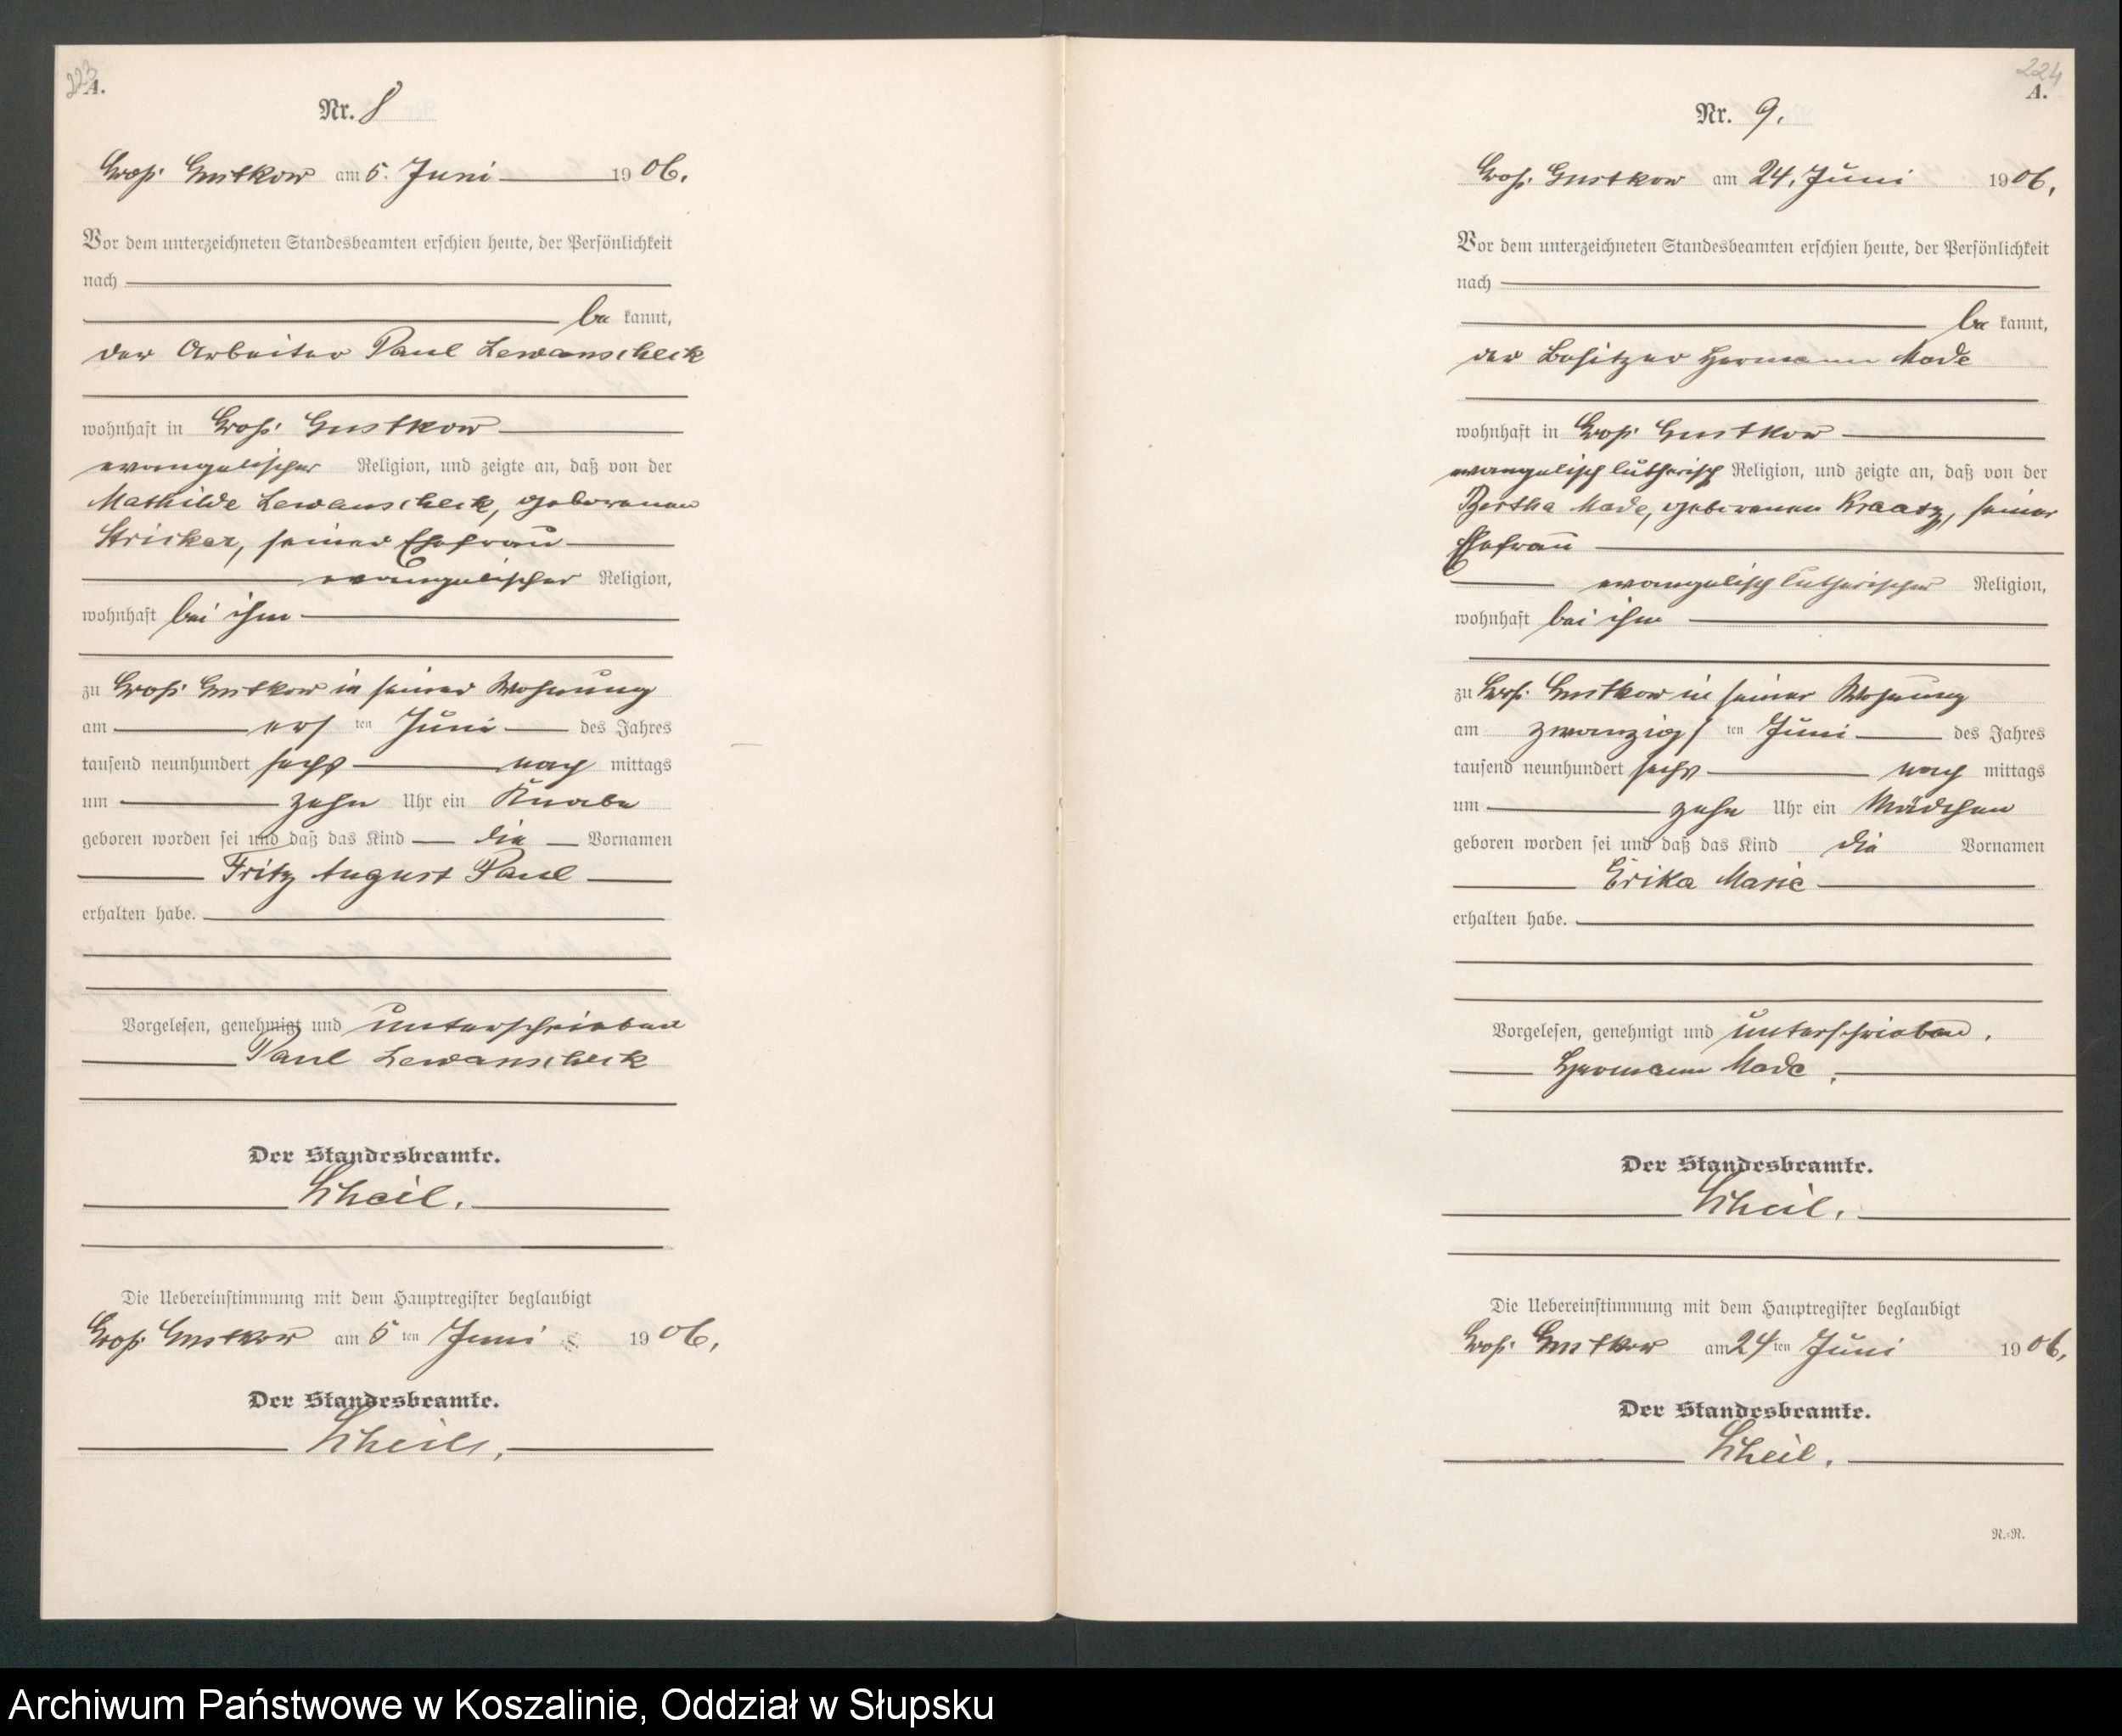 223
A.
Nr. 8
Groß Gustkow am 5. Juni 1906.
Vor dem unterzeichneten Standesbeamten erschien heute, der Persönlichkeit
nach
be kannt,
der Arbeiter Paul Lewanscheck
wohnhaft in Groß Gustkow
evangelischer Religion, und zeigte an, daß von der
Mathilde Lewanscheck, geborenen
Stricker, seiner Ehefrau
evangelischer Religion,
wohnhaft bei ihm
zu Groß Gustkow in seiner Wohnung
am ersten Juni des Jahres
tausend neunhundert sechs nach mittags
um zehn Uhr ein Knabe
geboren worden sei und daß das Kind die Vornamen
Fritz August Paul
erhalten habe.
Vorgelesen, genehmigt und unterschrieben
Paul Lewanscheck
Der Standesbeamte.
Scheil.
Die Uebereinstimmung mit dem Hauptregister beglaubigt
Groß Gustkow am 5 ten Juni 1906,
Der Standesbeamte.
Scheil,
224
A.
Nr. 9.
Groß. Gustkow am 24. Juni 1906,
Vor dem unterzeichneten Standesbeamten erschien heute, der Persönlichkeit
nach
be kannt,
der Besitzer Hermann Made
wohnhaft in Groß Gustkow
evangelisch lutherisch Religion, und zeigte an, daß von der
Bertha Made, geborenen Kraatz, seiner
Ehefrau
evangelisch lutherischer Religion,
wohnhaft bei ihm
zu Groß. Gustkow in seiner Wohnung
am zwanzigsten Juni des Jahres
tausend neunhundert sechs nach mittags
um zehn Uhr ein Mädchen
geboren worden sei und daß das Kind die Vornamen
Erika Marie
erhalten habe.
Vorgelesen, genehmigt und unterschrieben.
Hermann Made.
Der Standesbeamte.
Scheil.
Die Uebereinstimmung mit dem Hauptregister beglaubigt
Groß. Gustkow am 24 ten Juni 1906,
Der Standesbeamte.
Scheil.
N.=N.
Archiwum Państwowe w Koszalinie, Oddział w Słupsku